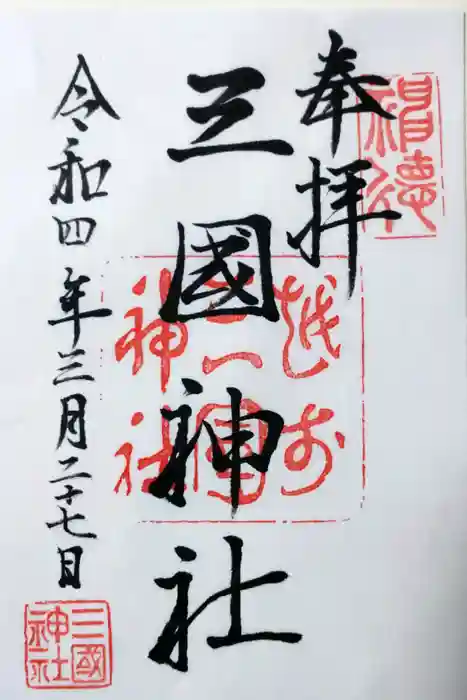 奉拝
三國神社
令和四年三月二十七日
越前
三国
神社
三國
神社